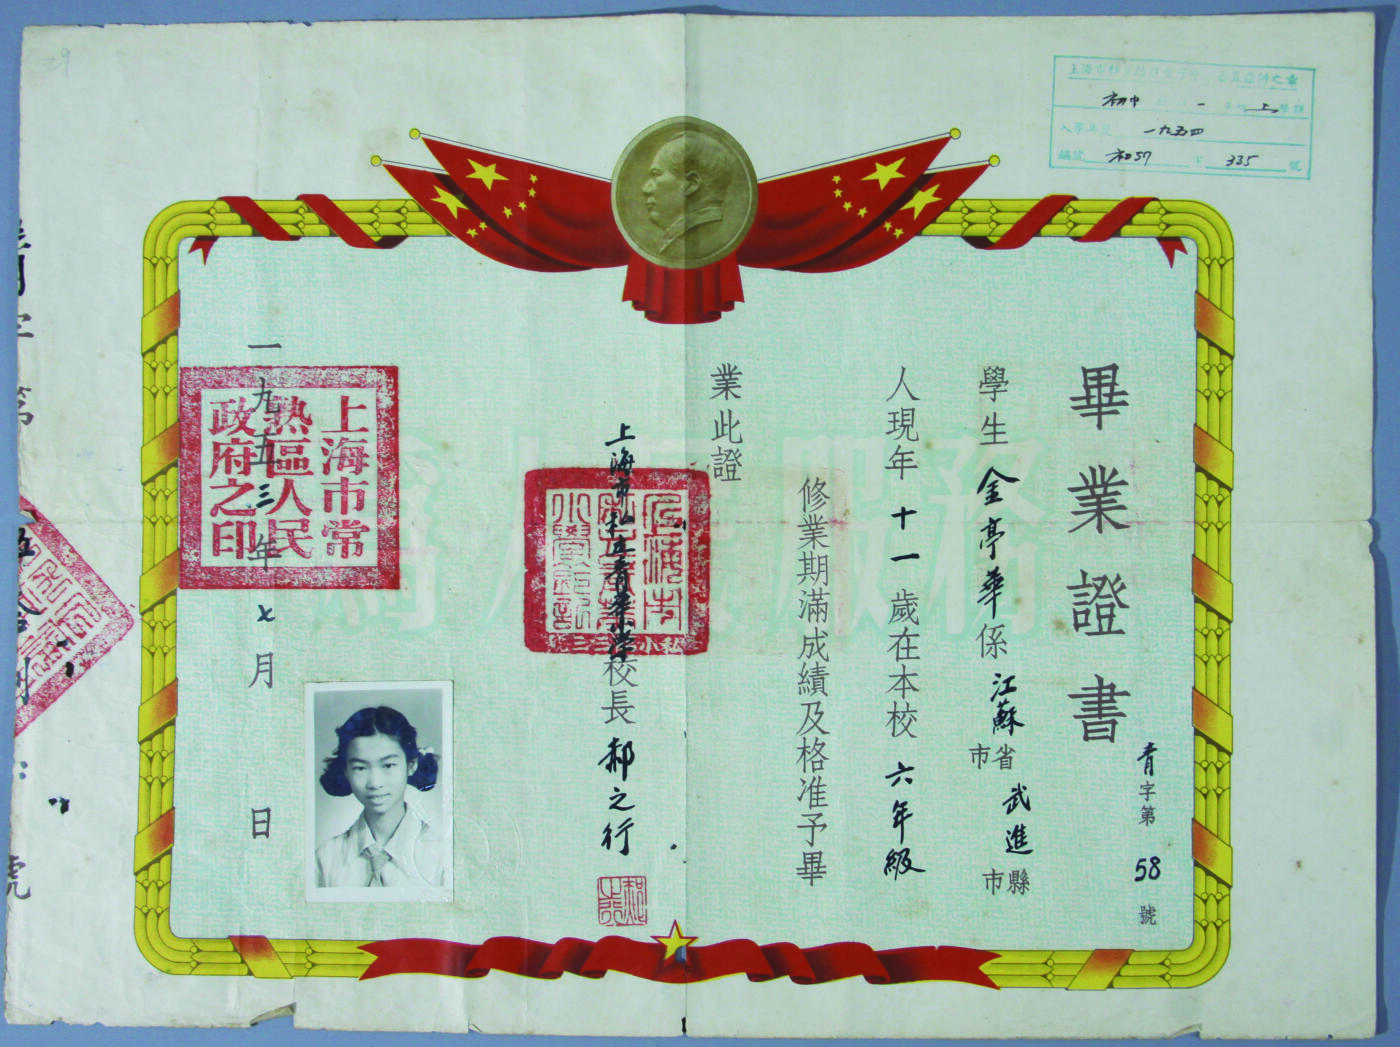 畢業證書
青字第58號
學生金亭華係江蘇省市武進縣市
人現年十一歲在本校六年級
修業期滿成績及格准予畢
業此證
上海市私立青華小學校長郝之行
一九五三年七月 日
上海市常
熟區人民
政府之印
為人民服務
初中 一 上
入學年度 一九五四
編號 初57 字 335 號
29